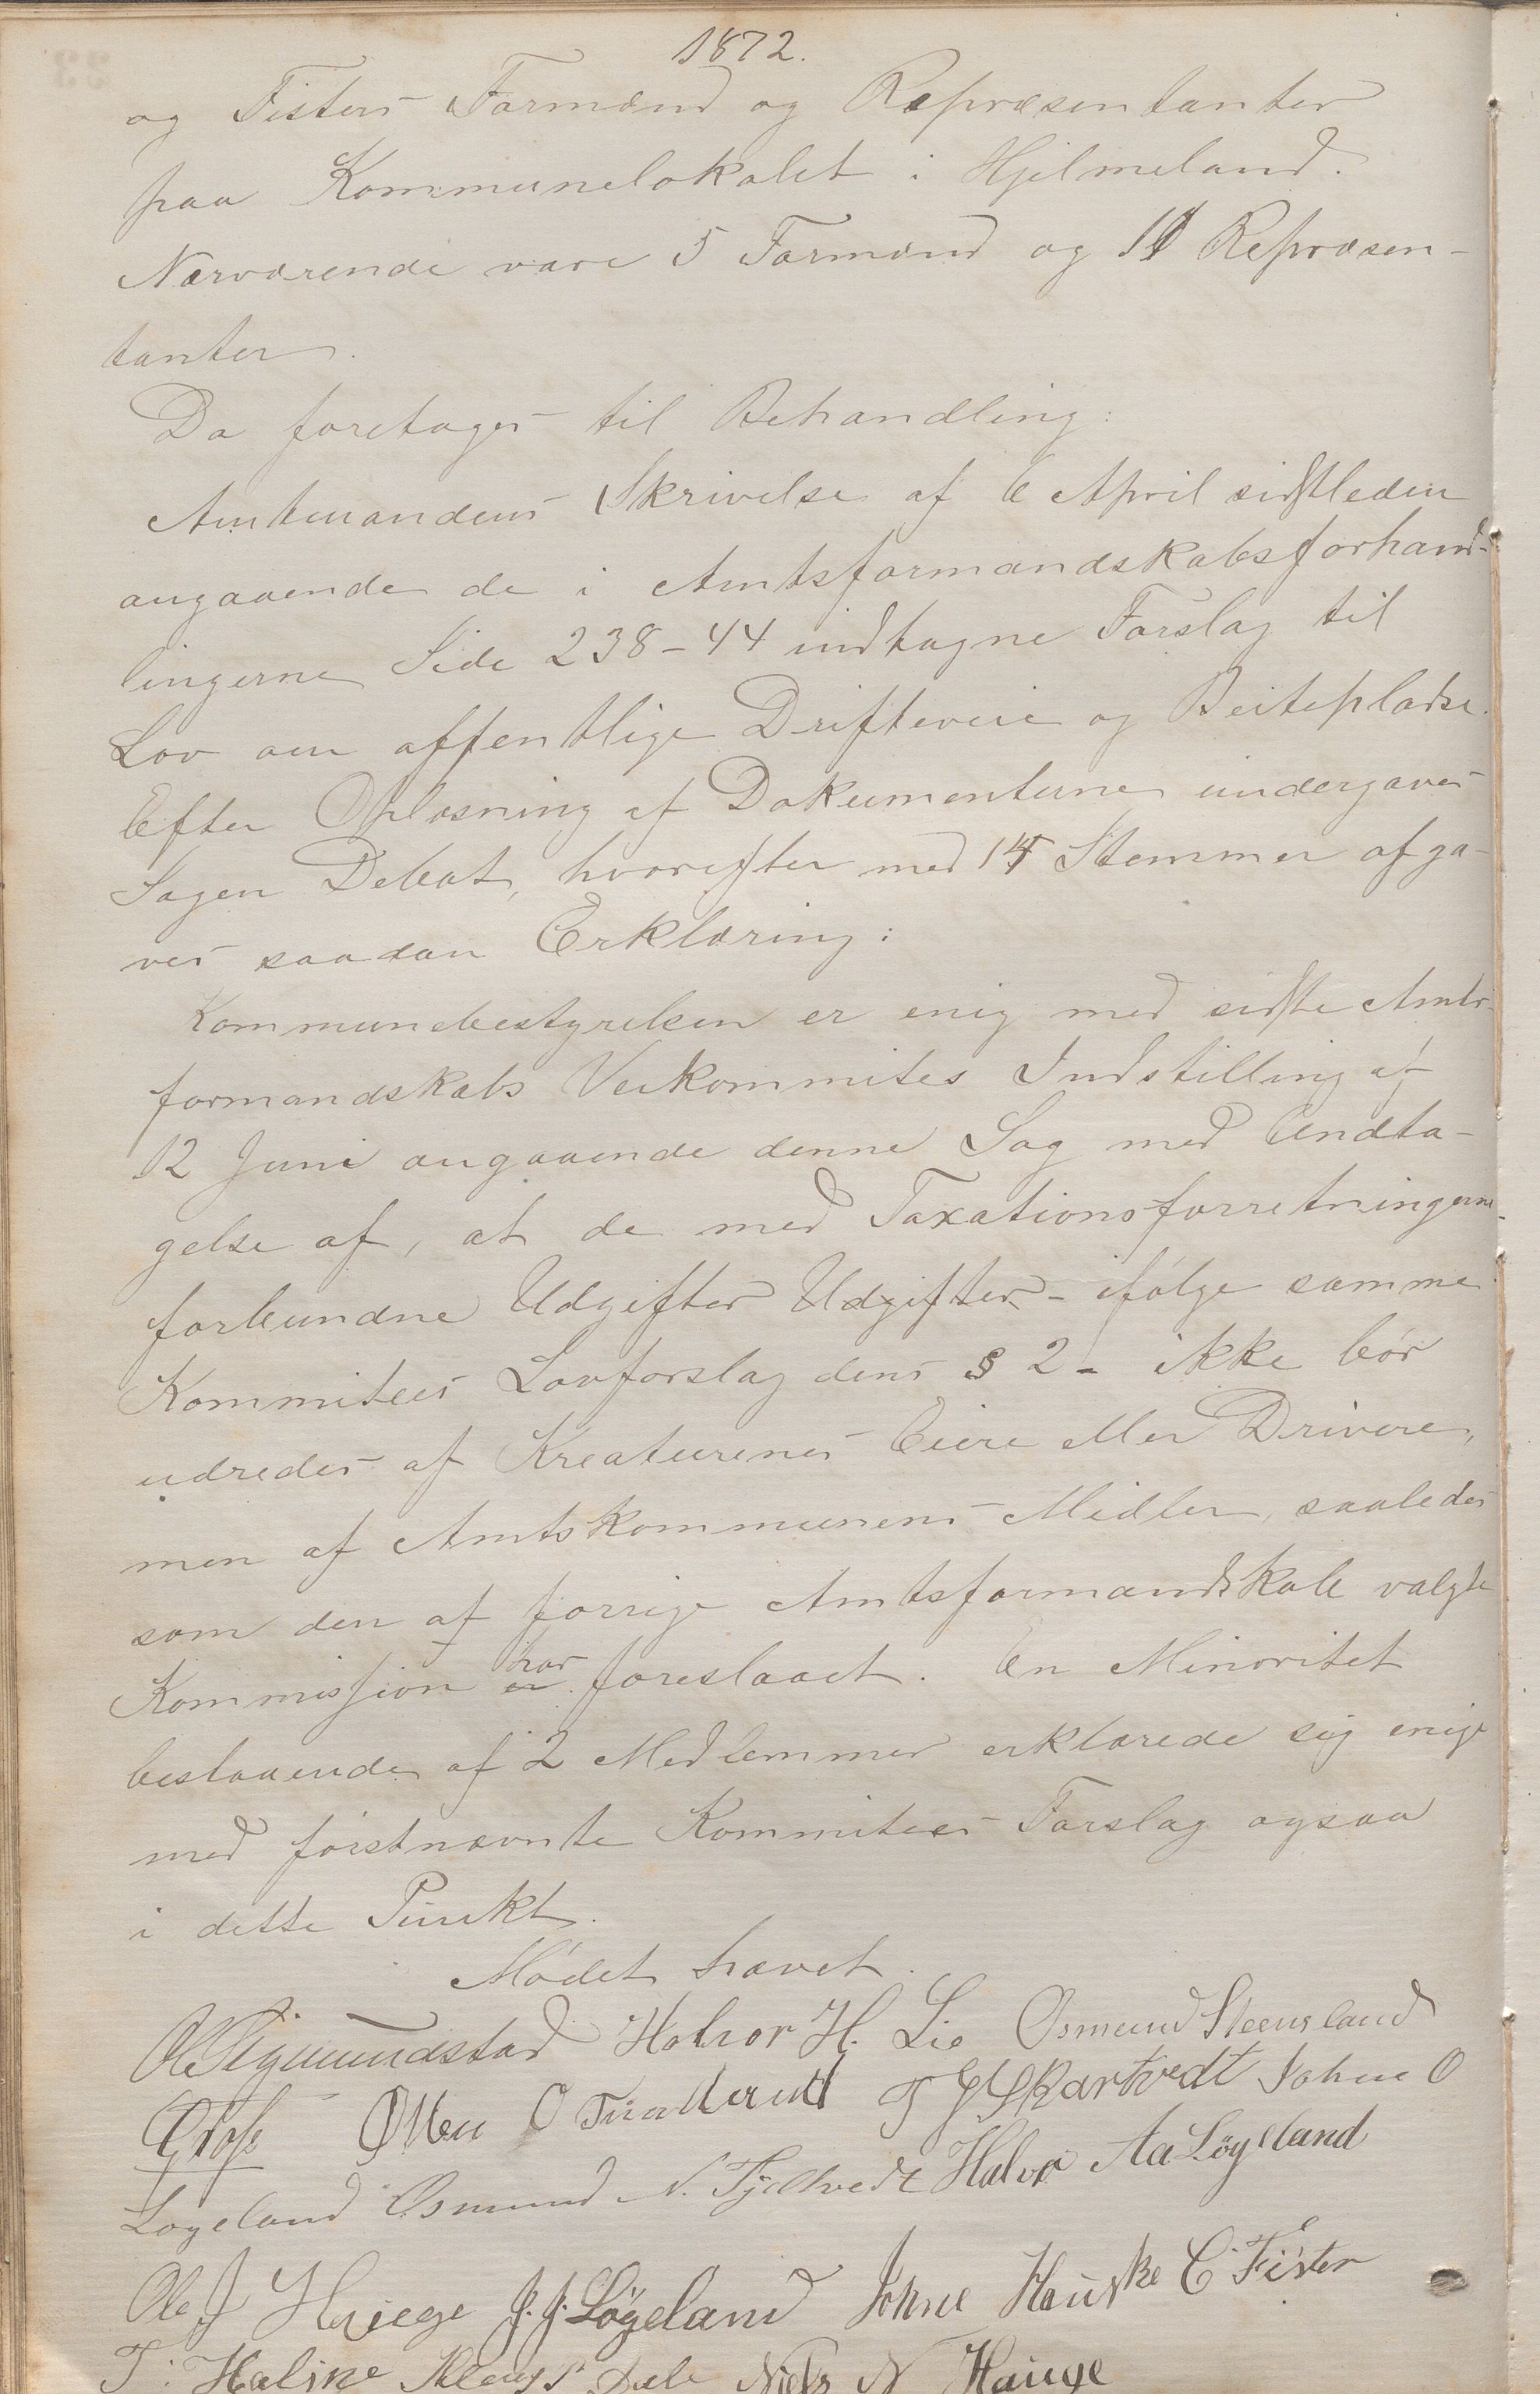 1872.
og Fisters Formænd og Repræsentanter
paa Kommunelokalet i Hjelmeland.
Nærværende vare 5 Formænd og 11 Repræsen-
tanter.
Da foretages til Behandling:
Amtmandens Skrivelse af 6 April sidstleden
angaaende de i Amtsformandskabsforhand-
lingerne Side 238-44 indtagne Forslag til
Lov om offentlige Drifteveie og Beitepladse.
Efter Oplæsning af Dokumenterne undergaves
Sagen Debat, hvorefter med 14 Stemmer afga-
ves saadan Erklæring:
Kommunebestyrelsen er enig med sidste Amts-
formandskabs Veikommites Indstilling af
12 Juni angaaende denne Sag med Undta-
gelse af, at de med Taxationsforretningerne
forbundne Udgifter Udgifter - ifølge samme
Kommitees Lovforslag dens § 2 - ikke bør
udredes af Kreaturenes Eiere eller Drivere,
men af Amtskommunens Midler, saaledes
som den af forrige Amtsformandskab valgte
Kommission er har foreslaaet. En Minoritet
bestaaende af 2 Medlemmer erklærede sig enige
med førstnævnte Kommitees Forslag ogsaa
i dette Punkt.
Mødet hævet.
Ole Sigmundstad Halvor H. Lie Osmund Steensland
Osmund Halvor Aa Løgeland
Grose O T Skartvedt Johne O
Løgeland N. Tjeltvedt
Ole J Hauge J. J. Løgeland Johne Hauske C Fister
T. Halsne Niels N Hauge